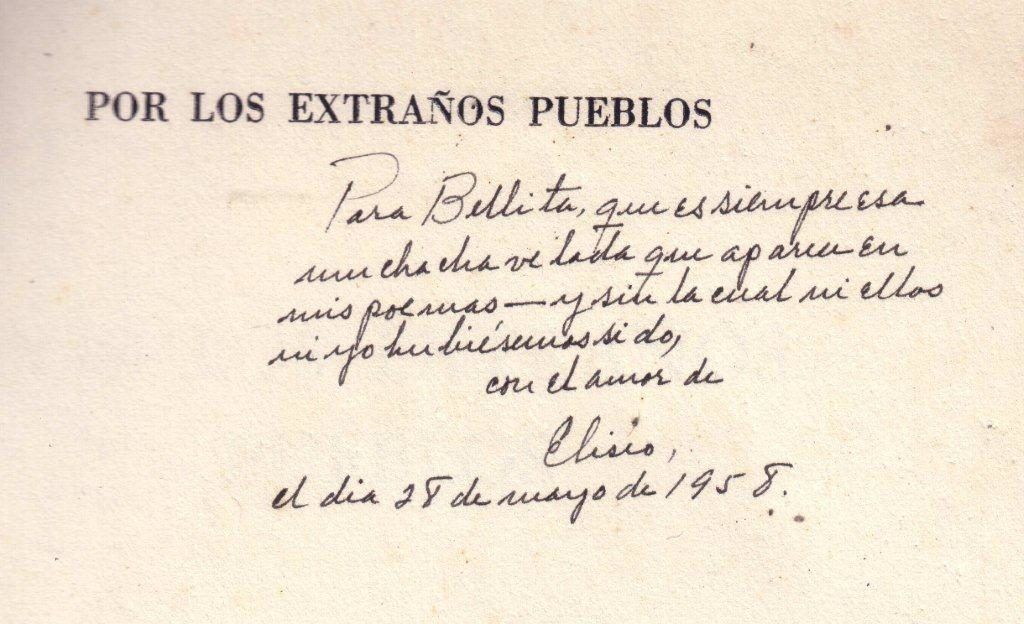 POR LOS EXTRAÑOS PUEBLOS
Para Bellita, que es siempre esa
muchacha velada que aparece en
mis poemas — y sin la cual ni ellos
ni yo hubiésemos sido,
con el amor de
Eliseo,
el día 28 de mayo de 1958.